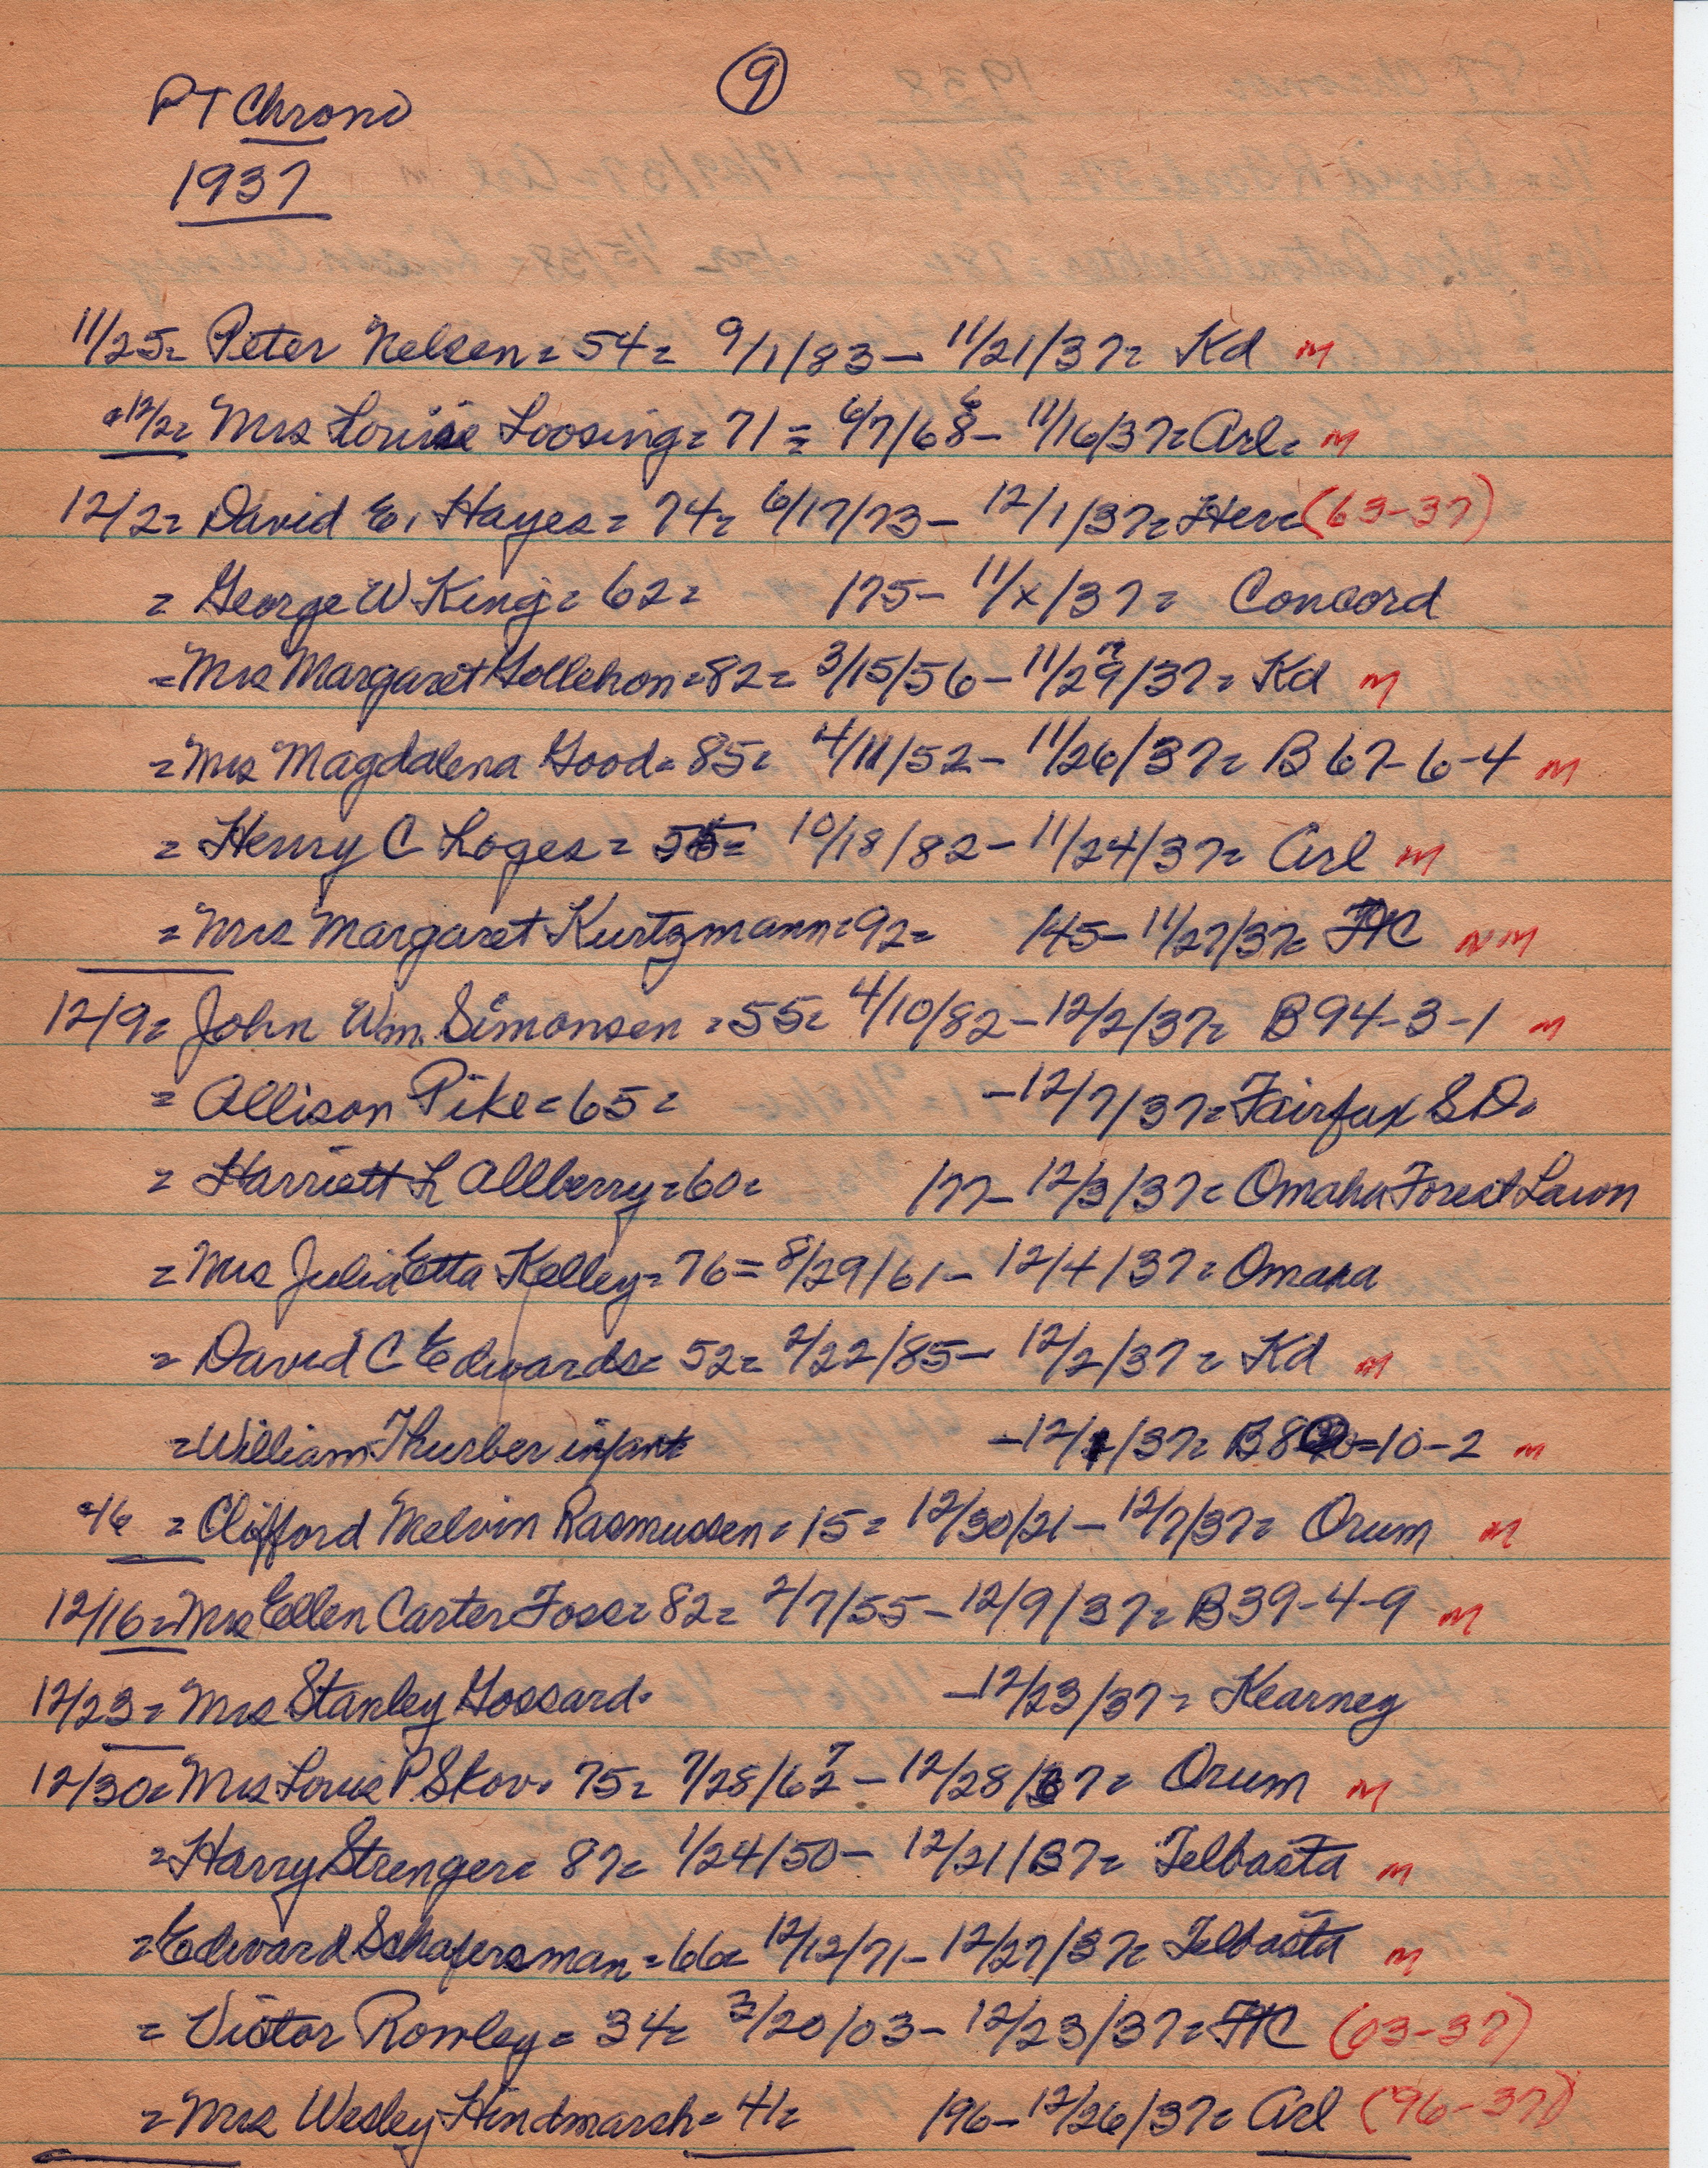 9
PT Chrono
1937
11/25= Peter Nelsen = 54 = 9/1/83 – 11/21/37 = Kd m
12/2= Mrs Louise Loosing = 71 = 6/7/68 – 11/16/37 = Arl = m
12/2= David E. Hayes = 74 = 6/17/73 – 12/1/37 = Her = (63-37)
= George W King = 62 = 175 – 11/x/37 = Concord
= Mrs Margaret Gollehon = 82 = 3/15/56 – 11/29/37 = Kd m
= Mrs Magdalena Good = 85 = 4/11/52 – 11/26/37 = B 67-6-4 m
= Henry C Loges = 55 = 10/18/82 – 11/24/37 = Arl m
= Mrs Margaret Kurtzmann = 92 = 145 – 11/27/37 = FtC NM
12/9= John Wm. Simonsen = 55 = 4/10/82 – 12/2/37 = B 94-3-1 m
= Allison Pike = 65 = – 12/7/37 = Fairfax S.D.
= Harriett L Allberry = 60 = 177 – 12/3/37 = Omaha Forest Lawn
= Mrs Julia Etta Kelley = 76 = 8/29/61 – 12/4/37 = Omaha
= David C Edwards = 52 = 2/22/85 – 12/2/37 = Kd m
= William Thurber infant – 12/1/37 = 10-2 m
= Clifford Melvin Rasmussen = 15 = 12/30/21 – 12/7/37 = Orum m
12/16= Mrs Ellen Carter Foss = 82 = 2/7/55 – 12/9/37 = B 39-4-9 m
12/23= Mrs Stanley Gossard. – 12/23/37 = Kearney
12/30= Mrs Louis P. Skov. 75 = 7/28/62 – 12/28/37 = Orum m
= Harry Strenger = 87 = 1/24/50 – 12/21/37 = Telbasta m
= Edward Schafersman = 66 = 12/12/71 – 12/27/37 = Telbasta m
= Victor Rowley = 34 = 3/20/03 – 12/23/37 = FtC (03-37)
= Mrs Wesley Hindmarsh = 41 = 196 – 12/26/37 = Arl (96-37)